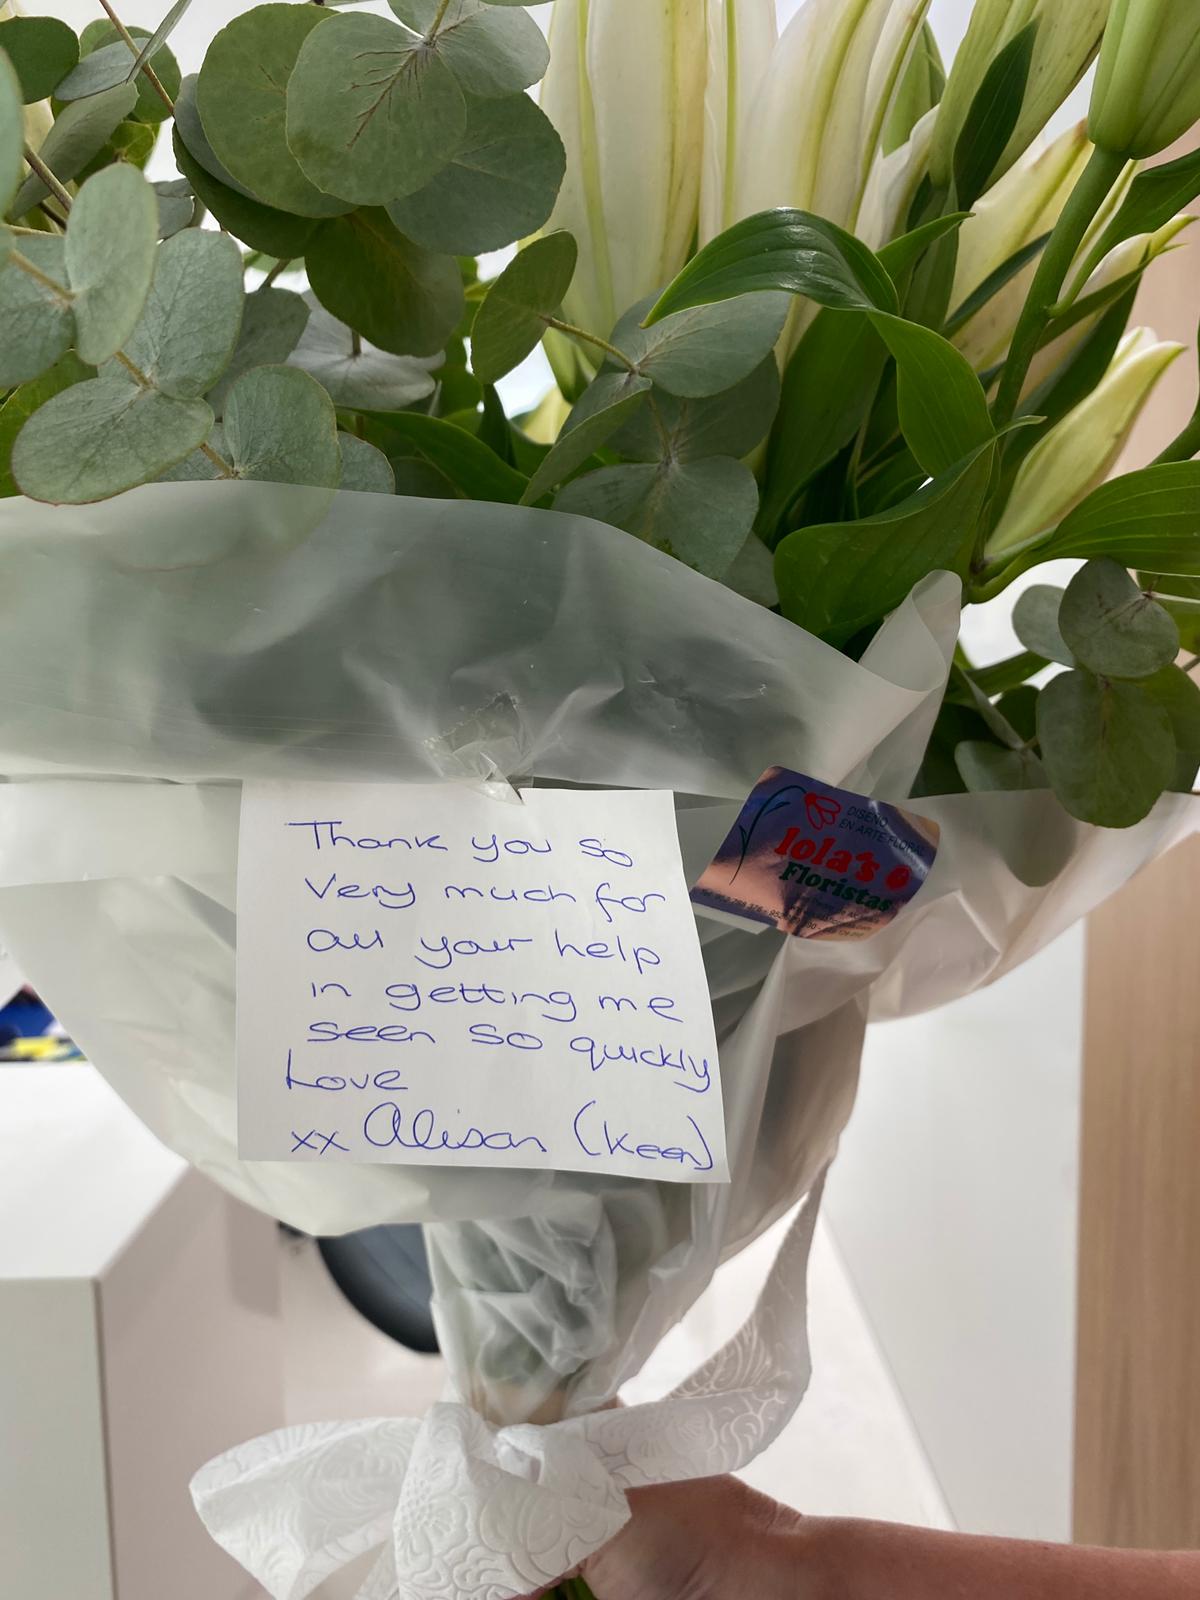 Thank you so
very much for
all your help
in getting me
seen so quickly
Love
xx Alison (Keen)
DISEÑO
EN ARTE FLORAL
lola's
Floristas